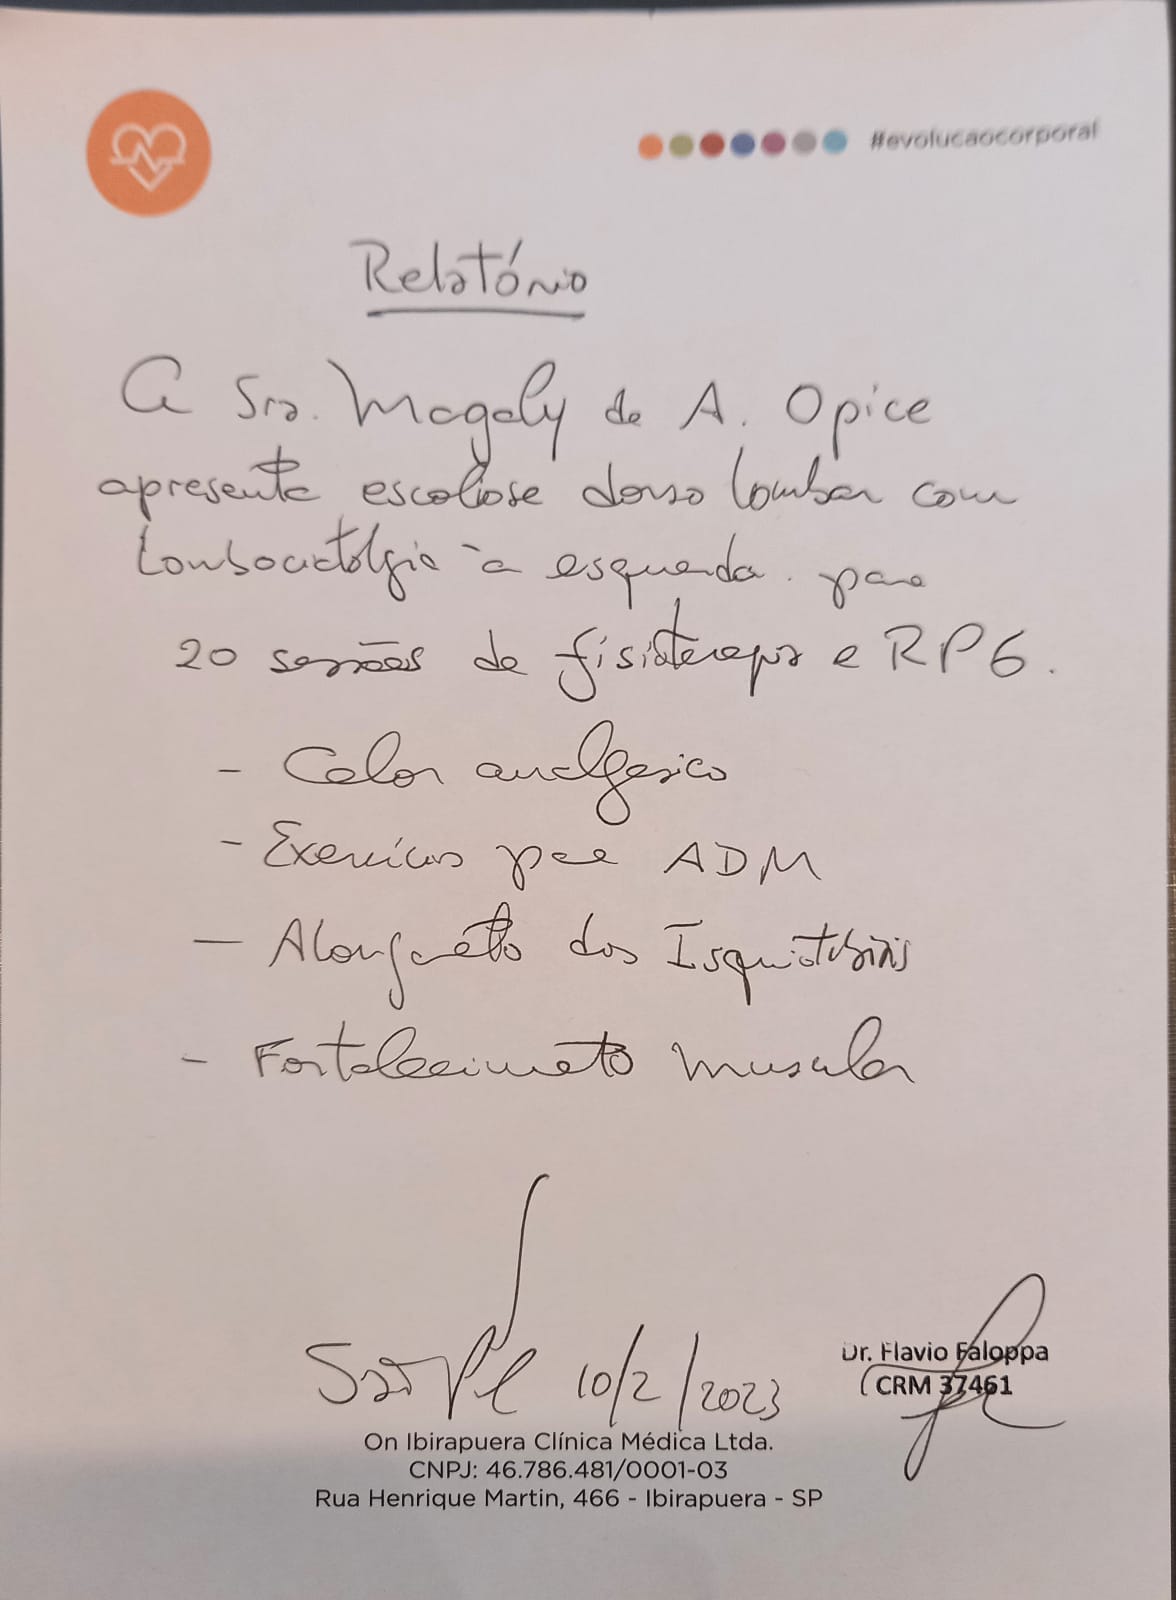 #evolucaocorporal
Relatório
A Sra. Magaly de A. Opice
apresenta escoliose dorso lombar com
lombociatalgia à esquerda. para
20 sessões de fisioterapia e RPG.
- Calor analgesico
- Exercícios para ADM
- Alongamento dos Isquiotibiais
- Fortalecimento muscular
São Pl 10/2/2023
Dr. Flavio Faloppa
CRM 37461
On Ibirapuera Clínica Médica Ltda.
CNPJ: 46.786.481/0001-03
Rua Henrique Martin, 466 - Ibirapuera - SP